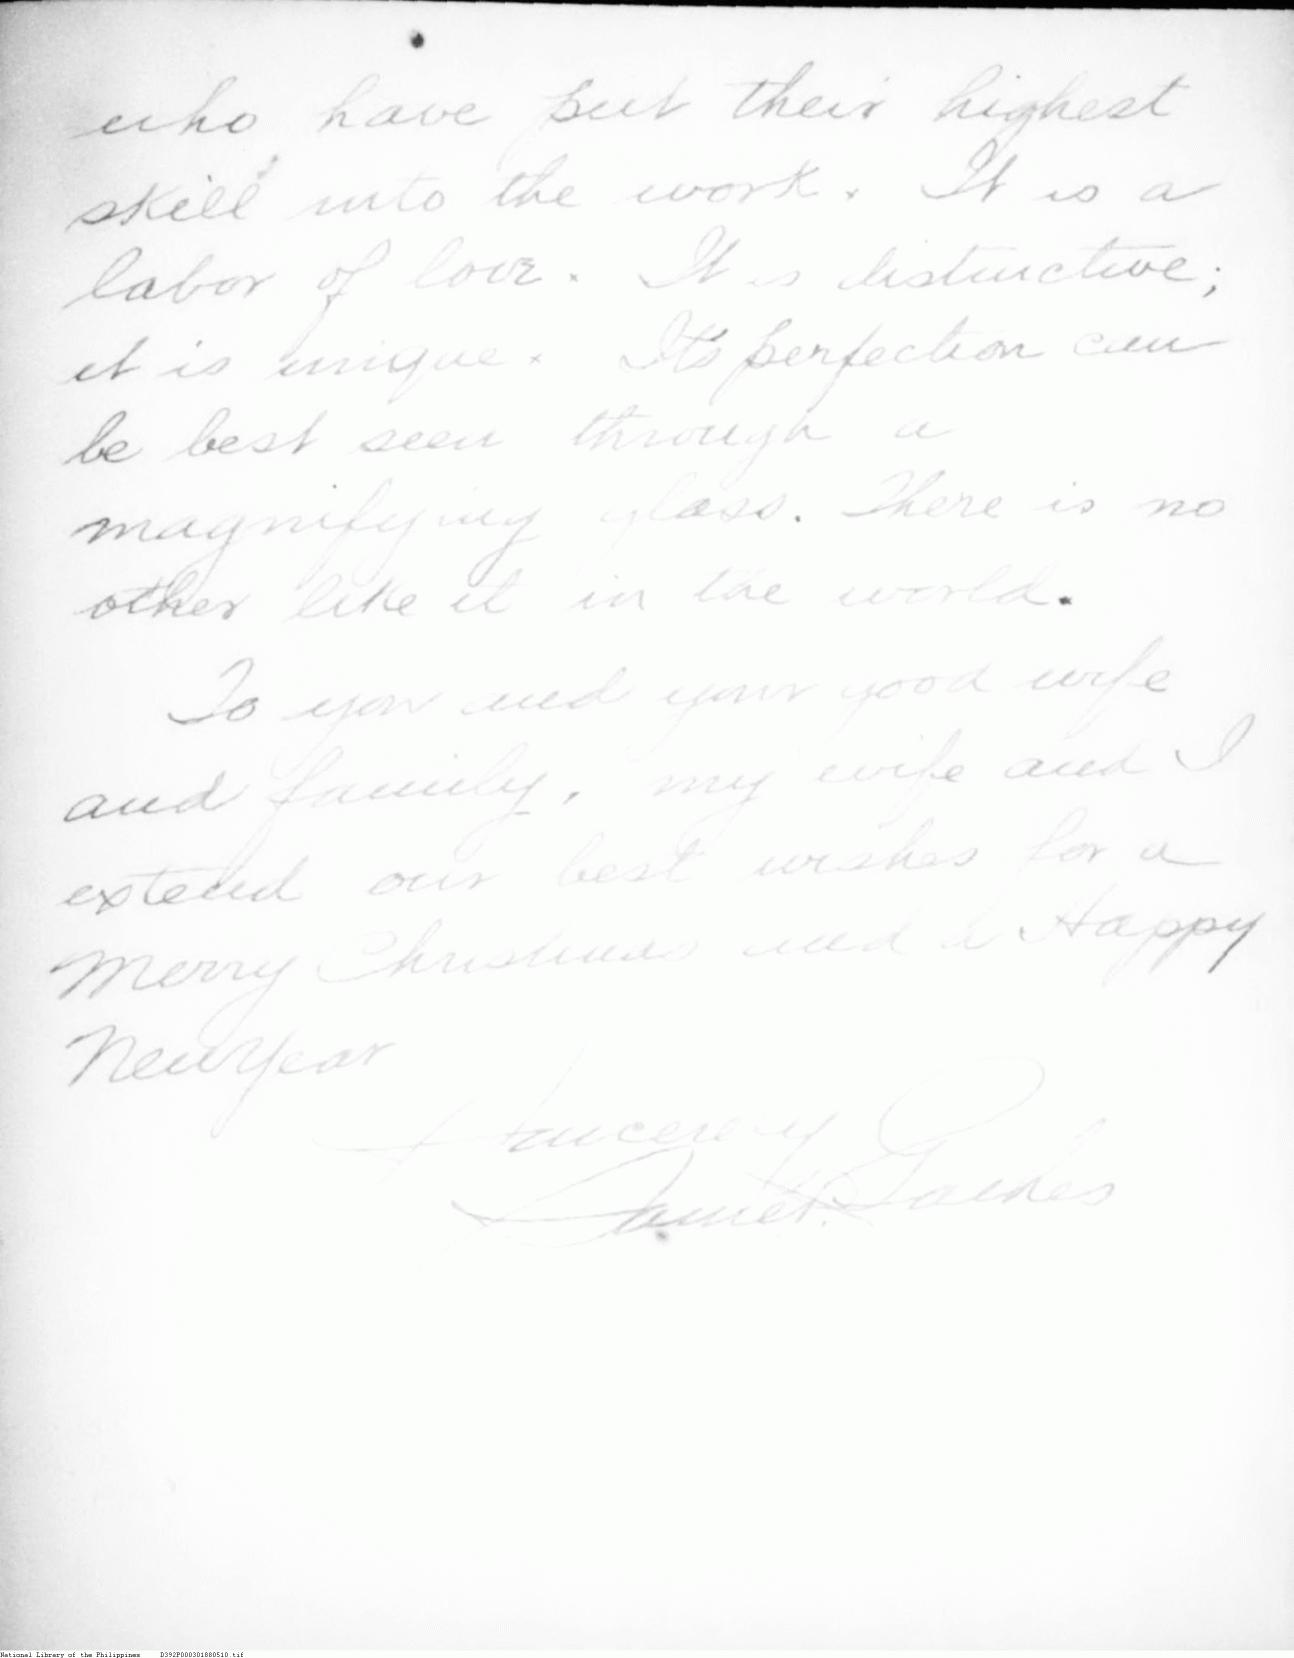 who have put their highest
skill into the work. It is a
labor of love. It is distinctive;
it is unique. It's perfection can
be best seen through a
magnifying glass. There is no
other like it in the world.
To you and your good wife
and family, my wife and I
extend our best wishes for a
Merry Christmas and a Happy
New Year
Sincerely
National Library of the Philippines D392P000301880510.tif